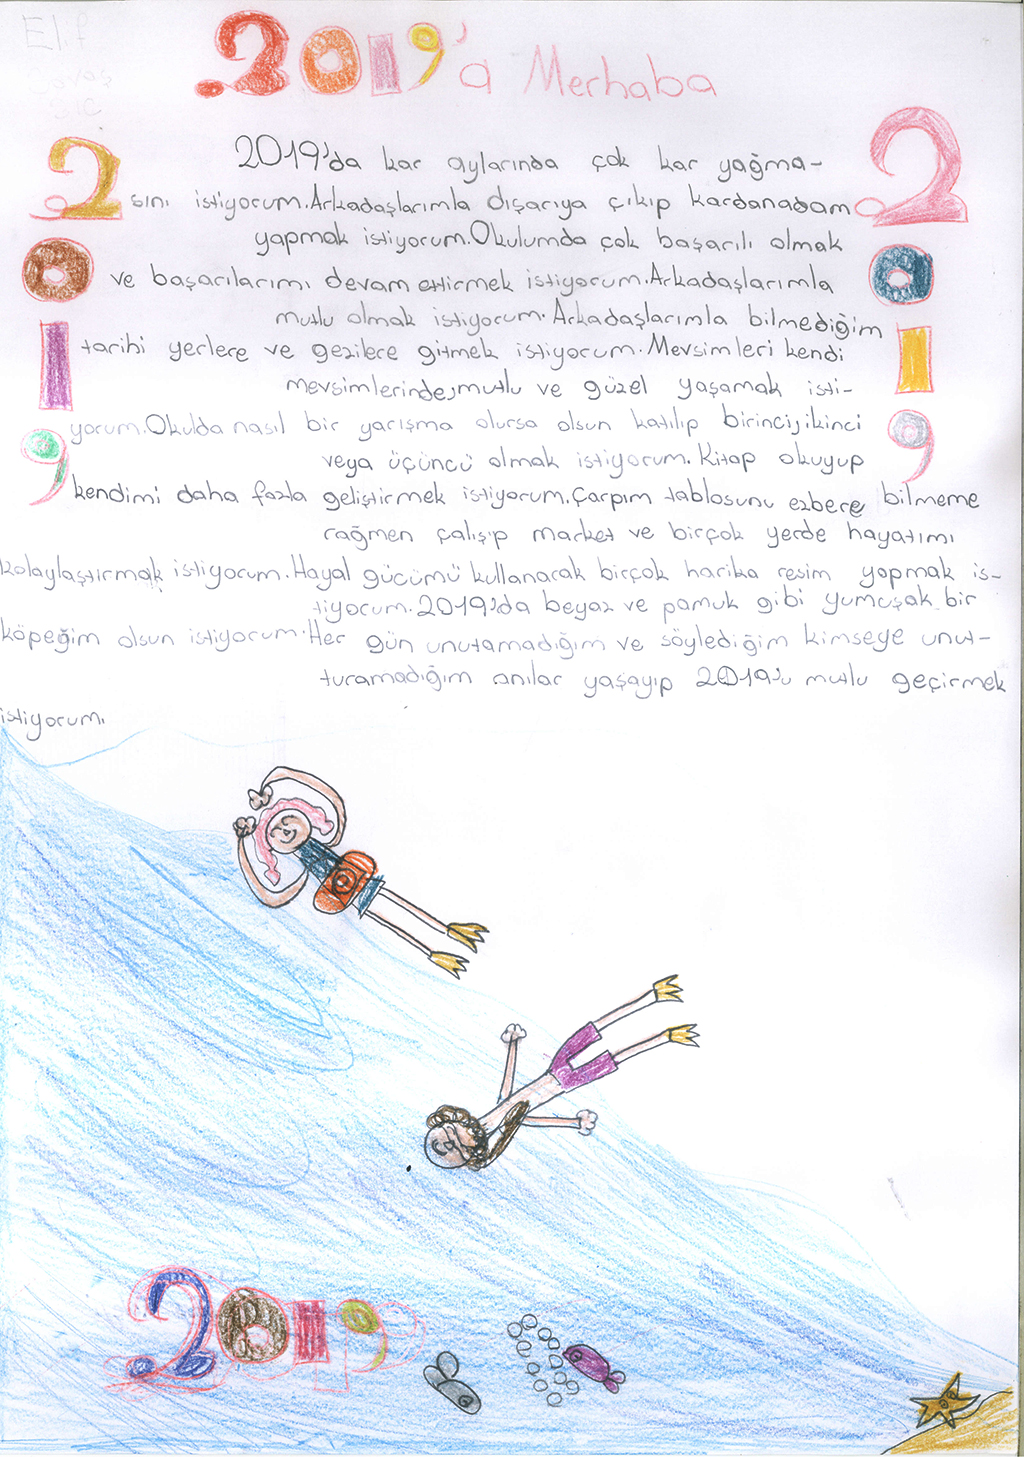 Elif
2019'a Merhaba
2019'da kar aylarında çok kar yağma-
sını istiyorum. Arkadaşlarımla dışarıya çıkıp kardanadam
yapmak istiyorum. Okulumda çok başarılı olmak
ve başarılarımı devam ettirmek istiyorum. Arkadaşlarımla
mutlu olmak istiyorum. Arkadaşlarımla bilmediğim
tarihi yerlere ve gezilere gitmek istiyorum. Mevsimleri kendi
mevsimlerinde, mutlu ve güzel yaşamak isti-
yorum. Okulda nasıl bir yarışma olursa olsun katılıp birinci, ikinci
veya üçüncü olmak istiyorum. Kitap okuyup
kendimi daha fazla geliştirmek istiyorum. Çarpım tablosunu ezbere bilmeme
rağmen çalışıp market ve birçok yerde hayatımı
kolaylaştırmak istiyorum. Hayal gücümü kullanarak birçok harika resim yapmak is-
tiyorum. 2019'da beyaz ve pamuk gibi yumuşak bir
köpeğim olsun istiyorum. Her gün unutamadığım ve söylediğim kimseye unut-
turamadığım anılar yaşayıp 2019'u mutlu geçirmek
istiyorum.
2019
2019
2019